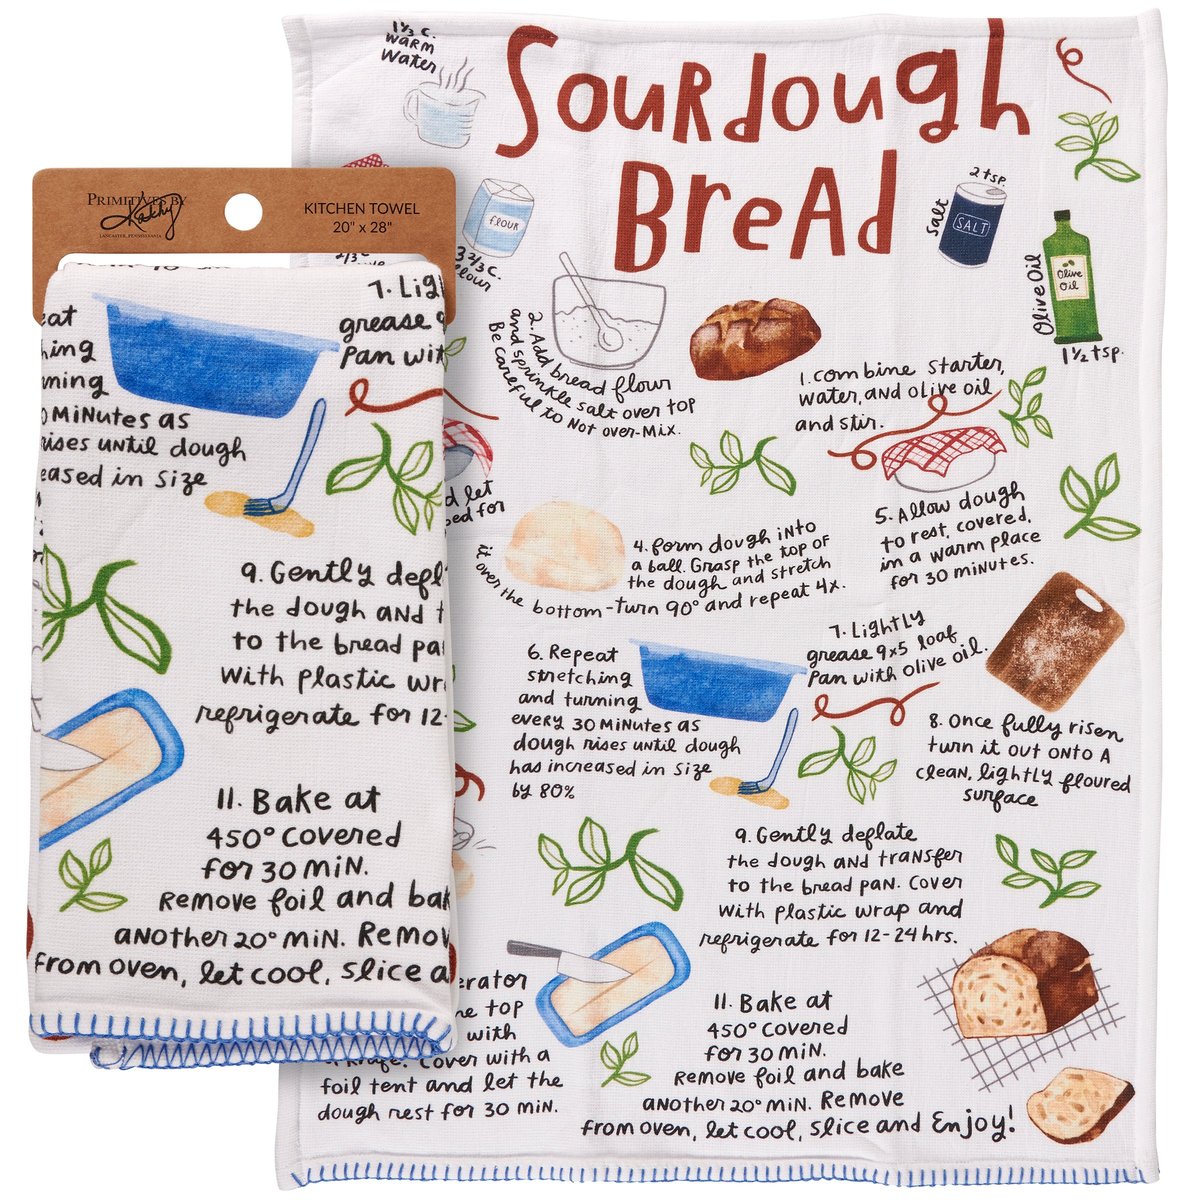 1⅓ c.
warm
Water
Sourdough
Bread
PRIMITIVES BY
Kathy
LANCASTER, PENNSYLVANIA
KITCHEN TOWEL
20" x 28"
flour
3 2/3 c.
flour
2 tsp.
salt
SALT
Olive Oil
Olive
Oil
1½ tsp.
1. combine starter,
water, and olive oil
and stir.
2. Add bread flour
and sprinkle salt over top
Be careful to Not over-mix.
let
for
4. form dough into
a ball. Grasp the top of
the dough and stretch
it over the bottom-turn 90° and repeat 4x.
5. Allow dough
to rest, covered,
in a warm place
for 30 minutes.
6. Repeat
stretching
and turning
every 30 minutes as
dough rises until dough
has increased in size
by 80%
7. Lightly
grease 9x5 loaf
pan with olive oil.
8. Once fully risen
turn it out onto a
clean, lightly floured
surface
9. Gently deflate
the dough and transfer
to the bread pan. Cover
with plastic wrap and
refrigerate for 12-24 hrs.
top
with
knife. Cover with a
foil tent and let the
dough rest for 30 min.
11. Bake at
450° covered
for 30 min.
Remove foil and bake
another 20° min. Remove
from oven, let cool, slice and Enjoy!
2/3 c.
7. Lig
grease 9
pan wit
minutes as
rises until dough
eased in size
9. Gently defl
the dough and t
to the bread pa
with plastic wr
refrigerate for 12-
11. Bake at
450° covered
for 30 min.
Remove foil and bak
another 20° min. Remov
from oven, let cool, slice a